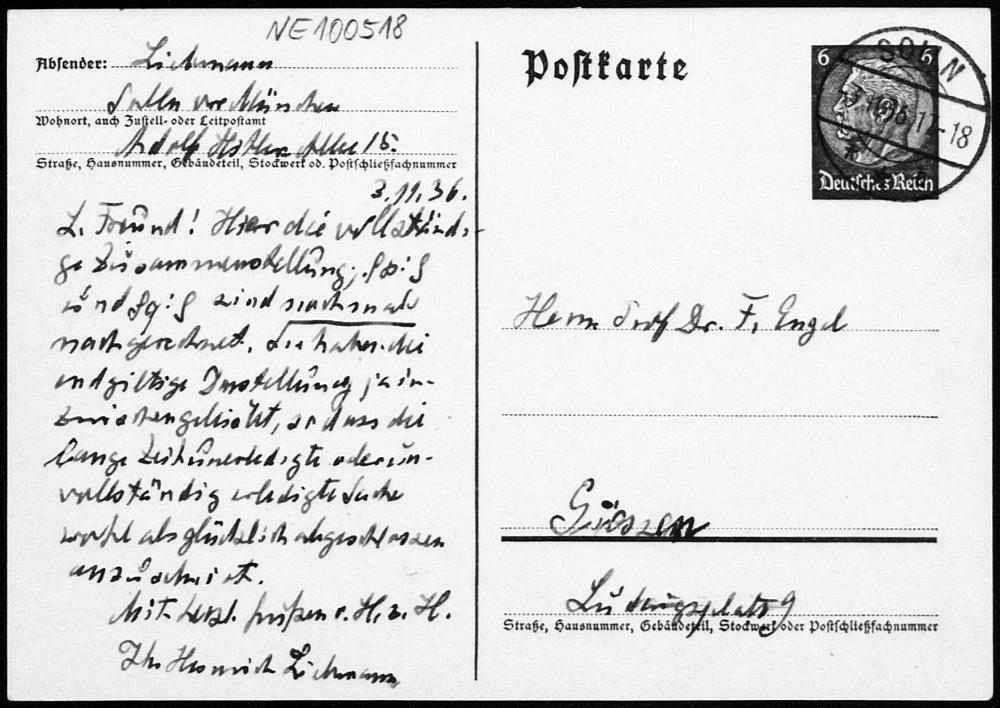 NE100518
Absender: Liebmann
Solln vor München
Wohnort, auch Zustell- oder Leitpostamt
Adolf Hitler Allee 15.
Straße, Hausnummer, Gebäudeteil, Stockwerk od. Postschließfachnummer
3.11.36.
L. Freund! Hier die vollständi-
ge Zusammenstellung,
und sind nochmals
nachgerechnet. Sie haben die
endgiltige Darstellung ja in-
zwischen gehabt, so dass die
lange Zeit unerledigte oder un-
vollständig erledigte Sache
wohl als glücklich abgeschlossen
anzusehen ist.
Mit herzl. Grüßen v. H. z. H.
Ihr Heinrich Liebmann
Postkarte
6 6
SOLLN
3.11.36 17-18
Deutsches Reich
Herrn Prof Dr. F. Engel
Giessen
Ludwigsplatz 9
Straße, Hausnummer, Gebäudeteil, Stockwerk oder Postschließfachnummer